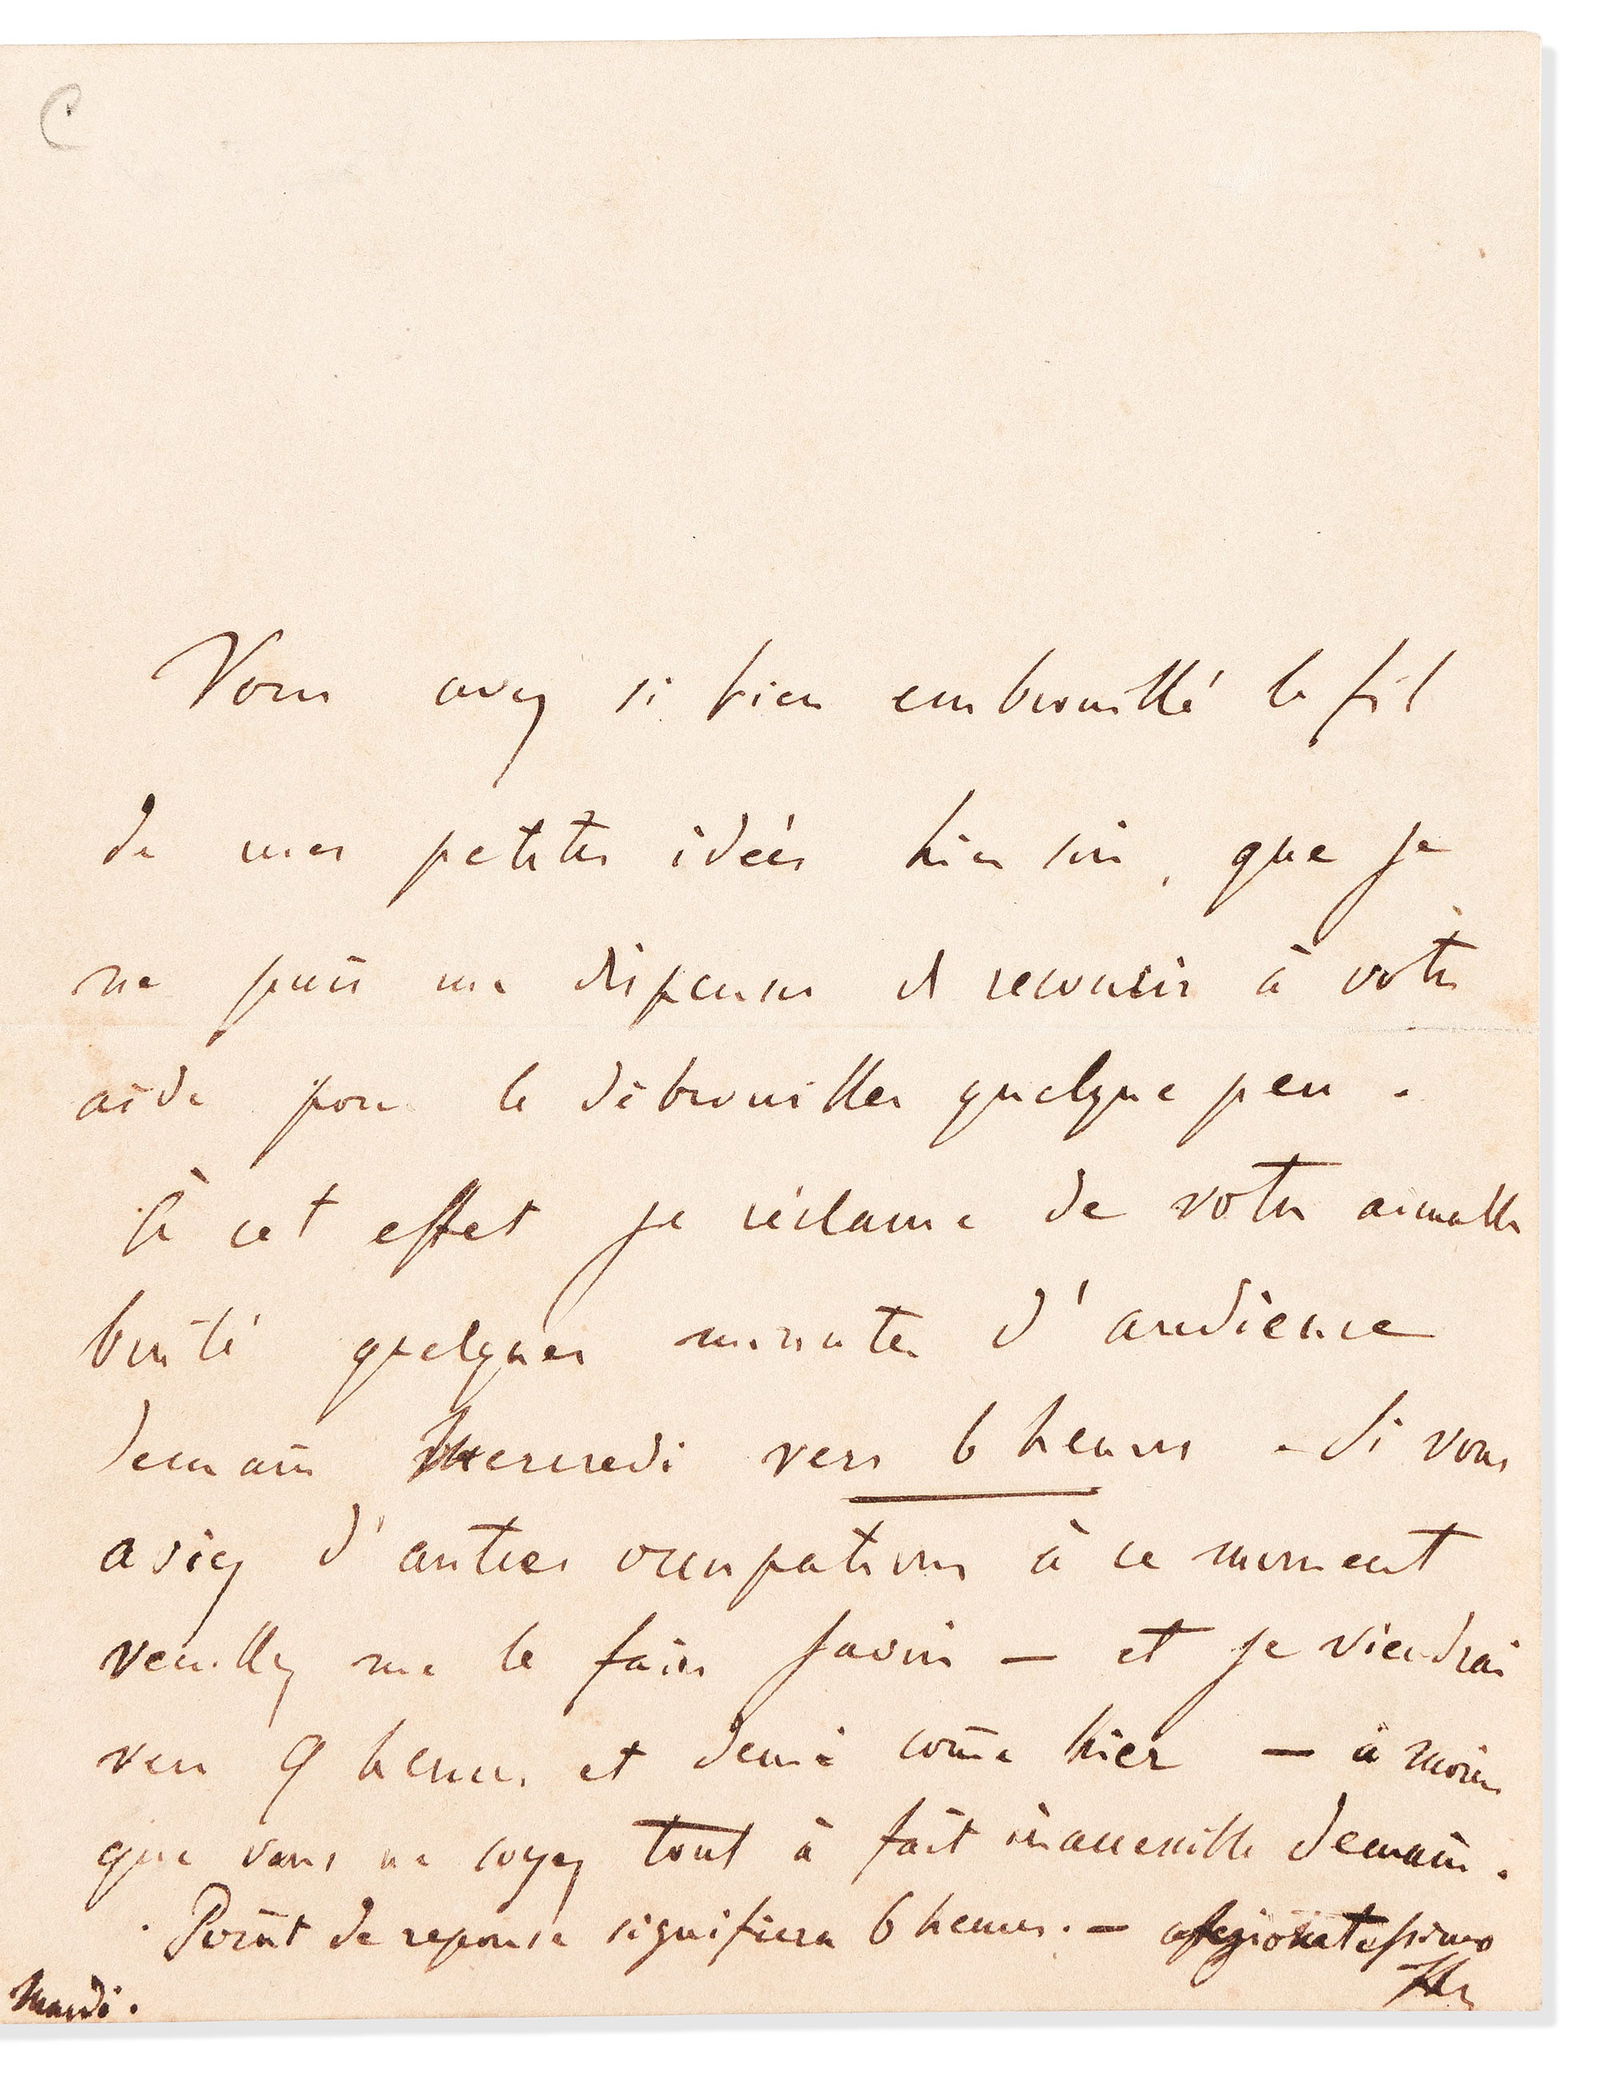 C
Vous avez si bien embrouillé le fil
de mes petites idées hier soir, que je
ne puis me dispenser de recourir à votre
aide pour le débrouiller quelque peu.
À cet effet je réclame de votre aimable
bonté quelques minutes d'audience
demain Mercredi vers 6 heures - Si vous
aviez d'autres occupations à ce moment
veuillez me le faire savoir — et je viendrai
vers 9 heures et demie come hier — à moins
que vous ne soyez tout à fait inaccessible demain.
Point de reponse signifiera 6 heures. —
Mardi.